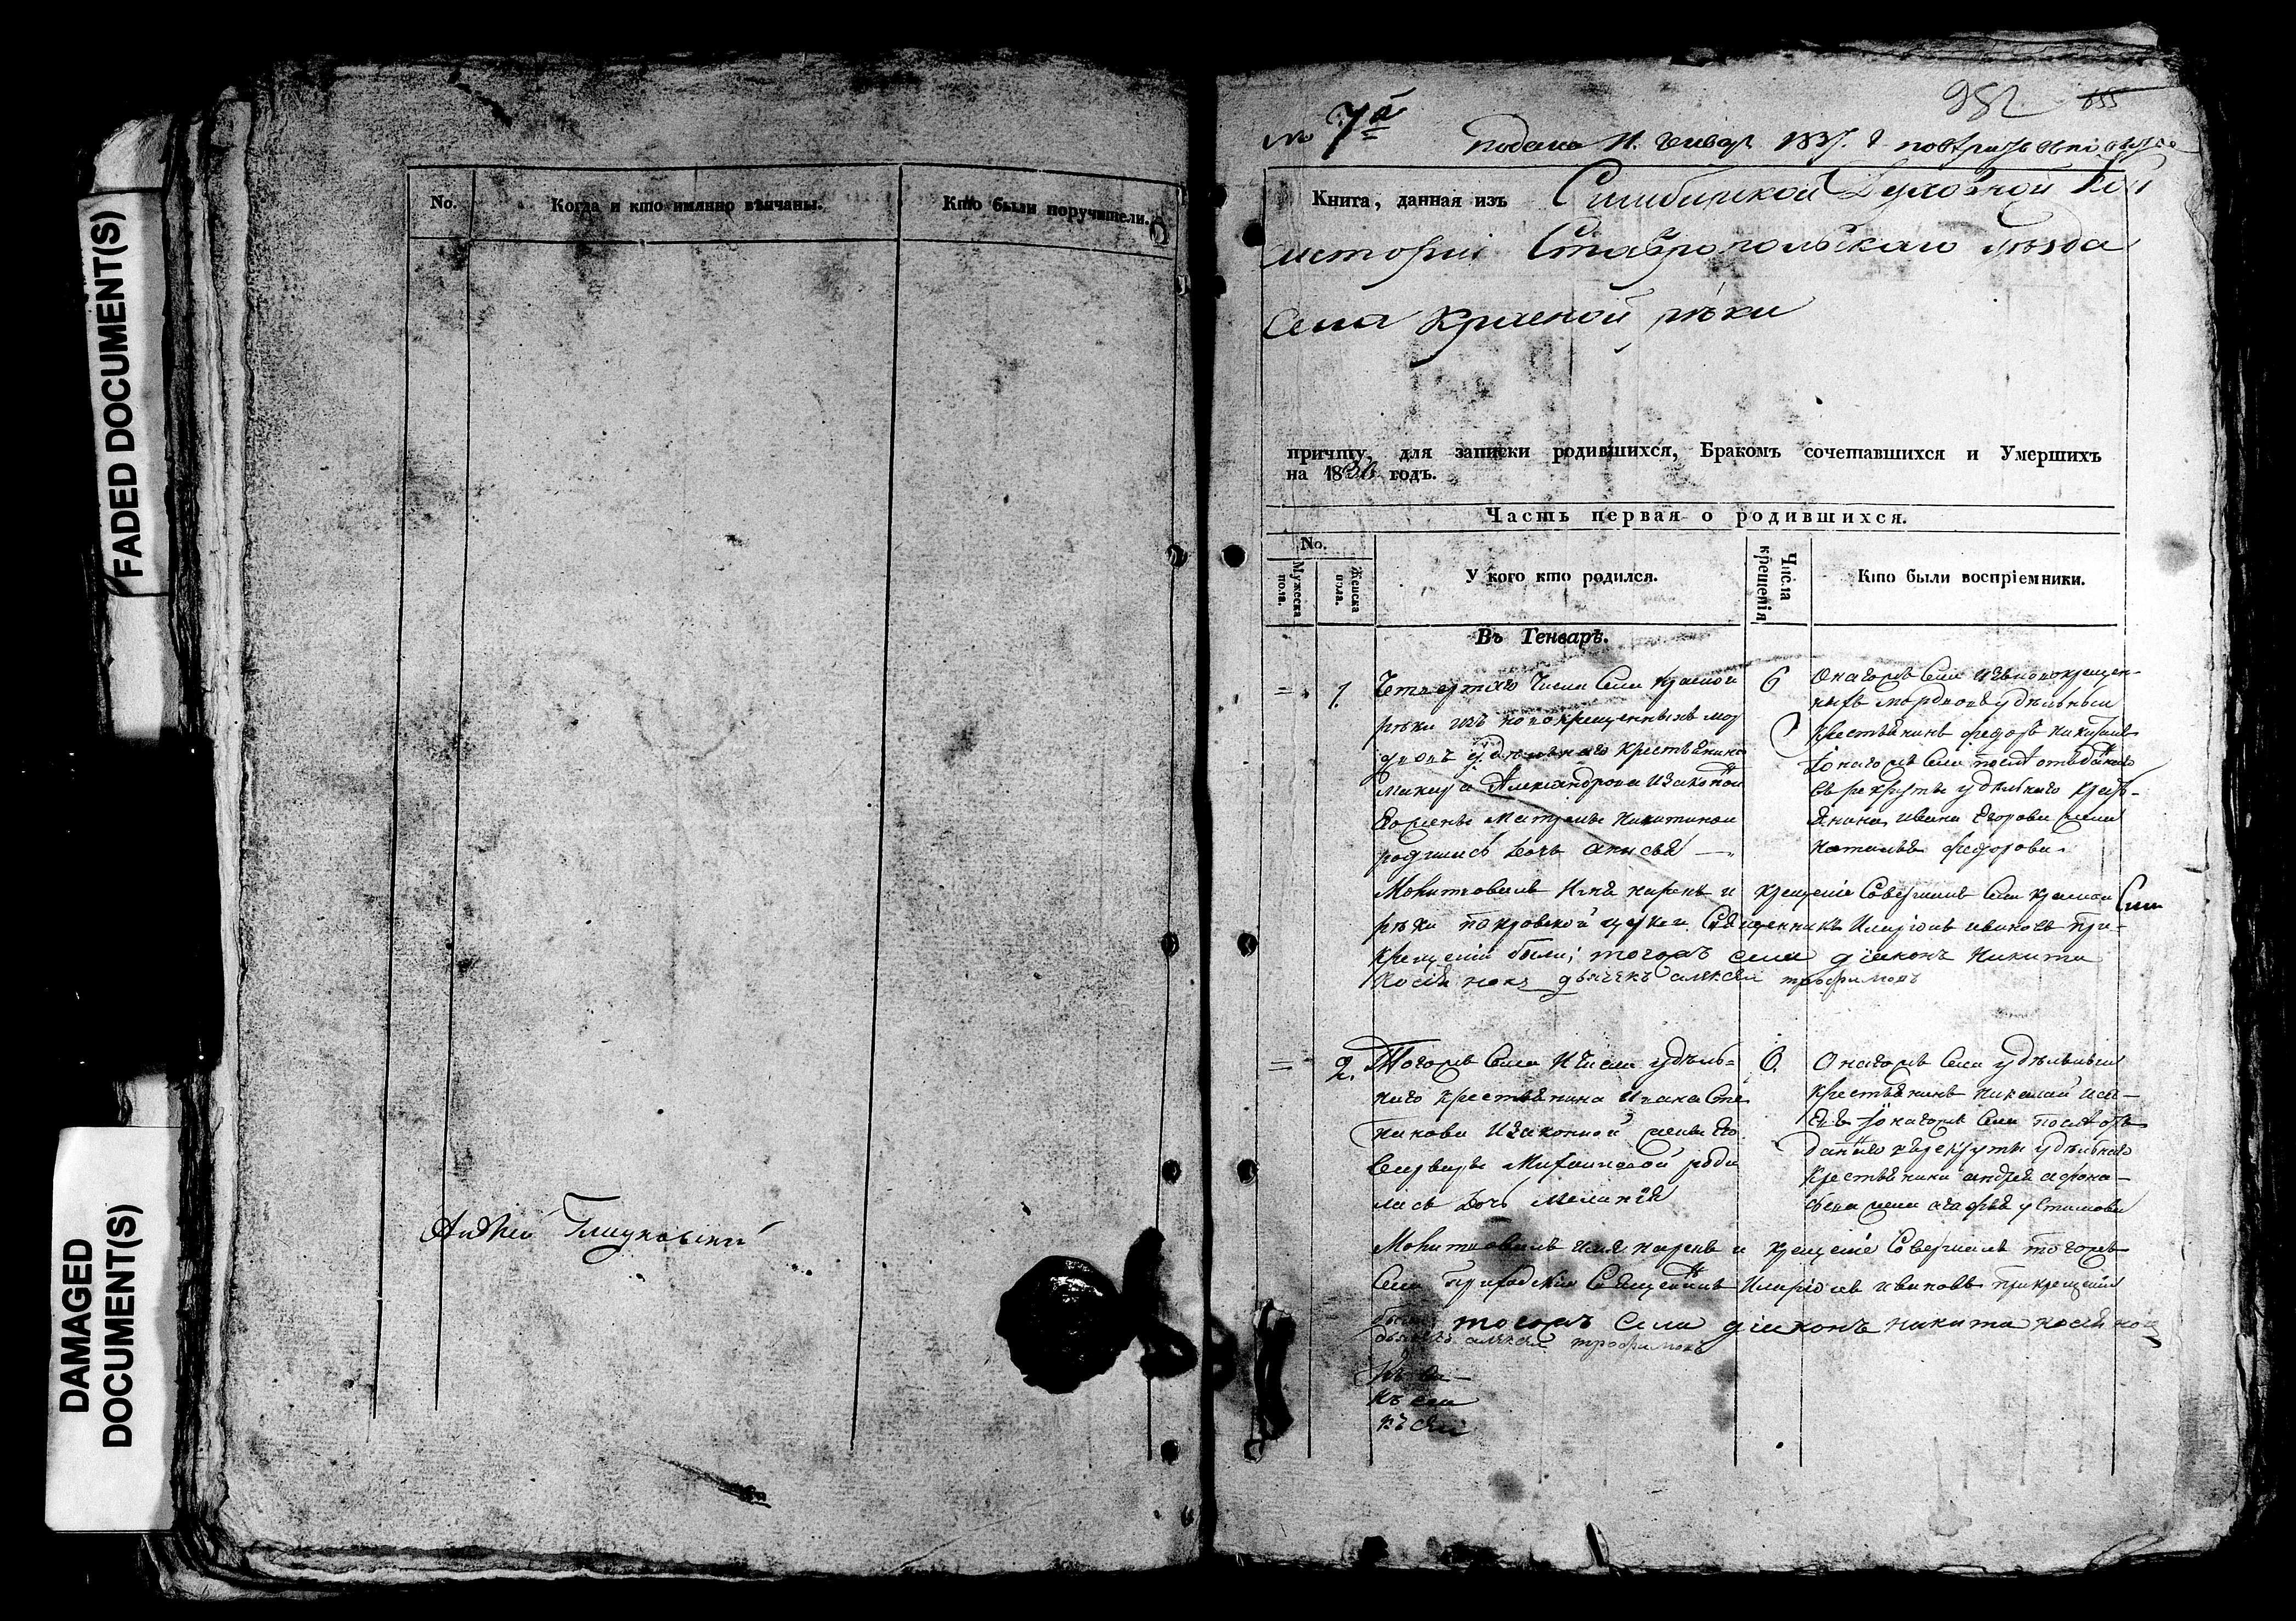 FADED DOCUMENT(S)
DAMAGED
DOCUMENT(S)
No.
Когда и кто имянно вѣнчаны.
Кто были поручители.
Андрей
952
655
No 7й
подана 11. генвар 1837.
Книга, данная изъ Симбирской Духовной Кон
систоріи Ставропольскаго уѣзда
села Красной рѣки
причту, для записки родившихся, Бракомъ сочетавшихся и Умершихъ
на 1836 годъ.
Часть первая о родившихся.
No.
Мужеска
пола.
Женска
пола.
У кого кто родился.
Числа
крещенія
Кто были воспріемники.
Въ Генварѣ.
= 1.
Четвертаго Числа Села Красной
рѣки изъ новокрещенныхъ мор
двовъ удѣльнаго крестьянина
Александрова изаконной
Его жены Матрены Никитиной
родилась дочь анисья
6
Онагожъ Села изъ новокрещен-
ныхъ мордвовъ удѣльный
крестьянинъ федоръ
Іонагожъ Села
въ рекруты удѣльнаго крес-
янина ивана Егорова жена
наталья федорова
Молитвовалъ Имя нарекъ и крещеніе Совершилъ Села красной
рѣки покровской церкви Священникъ Иларіонъ ивановъ при-
крещеніи были; тогожъ села діяконъ Никита
дьячекъ алексѣй трофимовъ
= 2.
Тогожъ Села Ичисла удѣль-
наго крестьянина Ивана Сте
панова Изаконной жены Его
Михайловой роди
лась дочь Меланія
6.
Онагожъ Села удѣльный
крестьянинъ николай
Іонагожъ Села
даннаго въ рекруты удѣльнаго
крестьянина андрея афона-
сьева жена агафья устинова
Молитвовалъ имя нарекъ и крещеніе Совершилъ тогожъ
Села приходской Священникъ Иларіонъ ивановъ прикрещеніи
были тогожъ села діяконъ никита
дьячекъ алексѣй трофимовъ